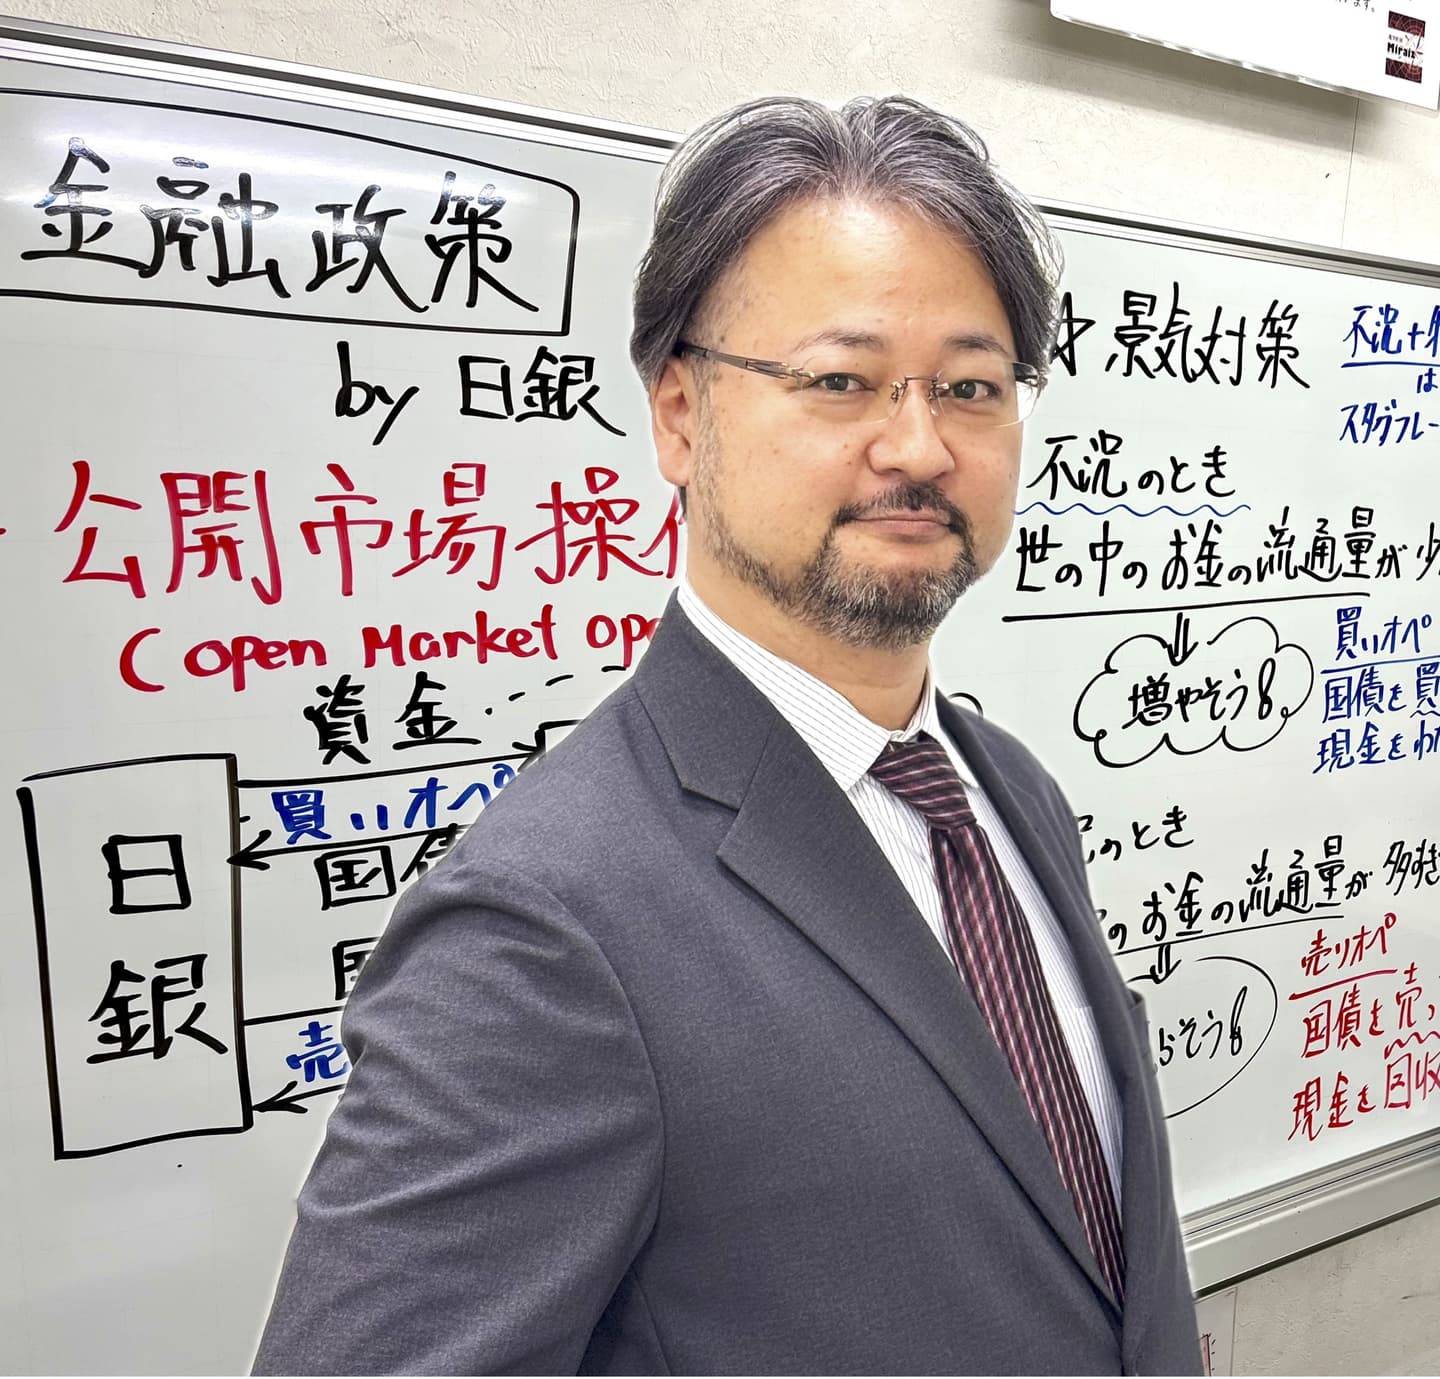 ます。
Miraiz
金融政策
by 日銀
公開市場操
(open Market ope
資金
買いオペ
国債
日銀
売
景気対策
不況
は
スタグフレー
不況のとき
世の中のお金の流通量が少
増やそう!
買いオペ
国債を買
現金をわた
のとき
のお金の流通量が多すぎ
らそう!
売りオペ
国債を売っ
現金を回収